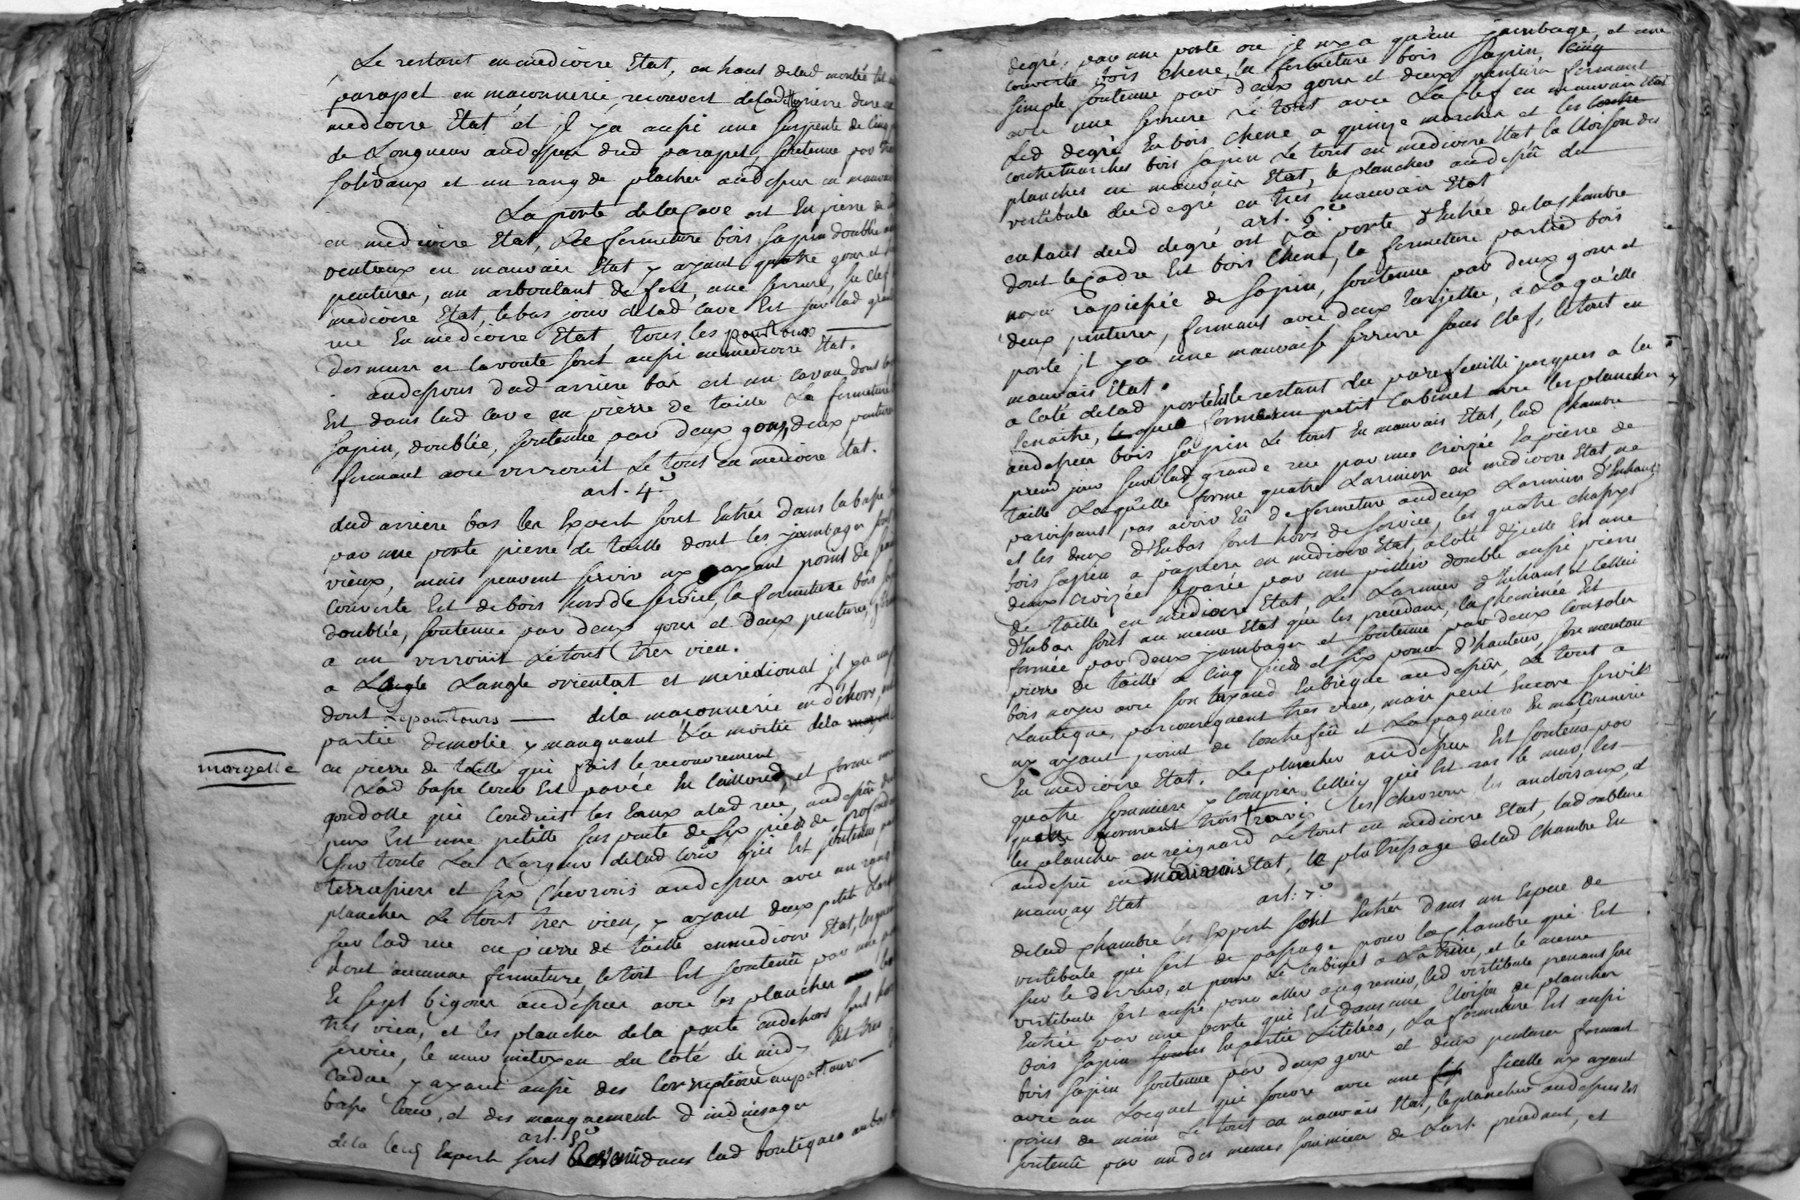 Le restant en mediocre Etat, en haut de lad montée Est
parapet en maçonnerie, recouvert de lad pierre dure en
mediocre Etat et Jl y a aussi une suspente de Cinq
de Longueur audessus dud parapet, soutenue par trois
solivaux et un rang de plancher audessus en mauvais
La porte de la Cave est En pierre de
en mediocre Etat, La fermeture bois sapin double
venteaux en mauvais Etat y ayant quatre gons et
pentures, un arboutant de fer, une serrure, sa Clef
mediocre Etat, le bas jour de lad cave Est sur lad grande
rue En mediocre Etat, tous les pourtours
des murs et la voute sont aussi en mediocre Etat.
audessous dud arriere bas est un caveau dont
Est dans lad cave en pierre de taille La fermeture
sapin, doublée, soutenue par deux gons, deux pentures
fermant avec un verrouil Le tout en mediocre Etat.
art. 4.e
dud arriere bas les Expert sont Entrés dans la basse
par une porte pierre de taille dont les jambages sont
vieux, mais peuvent servir ny ayant point de
couverte Est de bois hors de service, la fermeture bois
doublée, soutenue par deux gons et deux pentures,
a un verrouil Le tout tres vieu.
a Langle orientat et meridional jl y a un
dont Le pourtours — de la maconnerie en dehors,
partie demolie y manquant La moitié de la
en pierre de taille qui fait le recouvrement
margelle
Lad basse Cour Est pavée En Cailloux, et forme une
gondolle qui Conduit les Eaux a lad rue, audessus
puis Est une petite suspente de six pieds de profondeur
sur toute La Largeur de lad Cour qui Est soutenue
terrassiere et six Chevrons audessus avec un rang
plancher Le tout tres vieu, y ayant deux petits
sur lad rue en pierre de taille en mediocre Etat,
dont aucune fermeture, le toit Est soutenu par une
Et sept bigons audessus avec les plancher
tres vieu, et les plancher de la porte audehors sont hors
service, le mur mitoyen du Coté de midy Est tres
Cadue y ayant aussi des Corruptions au pourtour
basse Cour, et des manquements d'indiciages
art. 5.e
de la lesd Expert sont Revenu dans lad boutique au bas
degré, par une porte ou jl ny a qu'un jambage, et une
couverte bois chene, la fermeture bois sapin,
simple soutenue par deux gons et deux pentures fermant
avec une serrure Le tout avec La Clef en mauvais Etat
Led degré En bois Chene a quinze marches et les
contremarches bois sapin Le tout en mediocre Etat la Cloison des
planches en mauvais Etat, le plancher audessus du
vestibule dud degré en tres mauvais Etat
art. 6.e
en haut dud degré est La porte d'Entrée de la chambre
dont le Cadre Est bois Chene, la fermeture partie bois
noyer rapiessée de sapin, soutenue par deux gons et
deux pentures, fermant avec deux targettes, a Laquelle
porte jl y a une mauvaise serrure sans Clef, le tout en
mauvais Etat.
a coté de lad porte Est le restant du parefeuille jusques a la
fenaitre, le quel forme un petit Cabinet avec les plancher
audessus bois sapin Le tout En mauvais Etat, lad Chambre
prend jour sur lad grande rue par une Croizée En pierre de
taille Laquelle forme quatre Larmiers en mediocre Etat ne
paroissant pas avoir Eu de fermeture aux deux Larmiers d'Enhaut
et les deux d'Enbas sont hors de service, les quatre chassys
bois sapin a papiers en mediocre Etat, a coté d'jcelle Est une
deux Croizée separée par un pillier double aussi pierre
de taille en mediocre Etat, Le Larmier d'Enhaut et Celluy
d'Enbas sont au meme Etat que les precedans, la cheminée Est
formée par deux jambages et soutenue par deux Consoles
pierre de taille a Cinq pieds et six pouces d'hauteur, son menteau
bois noyer avec son tuyeaud En brique audessus, Le tout a
Lantique, parconsequent tres vieu, mais peut Encore servir
ny ayant point de contrefeu et La pagniere En maconnerie
En mediocre Etat. Le plancher audessus Est soutenu par
quatre sommiers y Compris Celluy qui Est ras le mur, les
quatre formant trois travée les chevrons les andoisaux, et
les plancher en reignard Le tout en mediocre Etat, lad doublure
audessus en mediocre Etat, le platressage de lad Chambre En
mauvay Etat
art. 7.e
de lad chambre les Expert sont Entrés dans un Espece de
vestibule qui sert de passage pour la Chambre qui Est
sur le derriere, et pour Le Cabinet a La suite, et le meme
vestibule sert aussy pour aller au grenier, led vestibule prenant son
Entrée par une porte qui Est dans une Cloison de plancher
bois sapin En partie Litelées, La fermeture Est aussi
bois sapin soutenue par deux gons et deux pentures fermant
avec un Locquet qui souvre avec une ficelle ny ayant
point de main Le tout en mauvais Etat, le plancher audessus Est
soutenu par un des memes sommiers de Lart. precedant, et